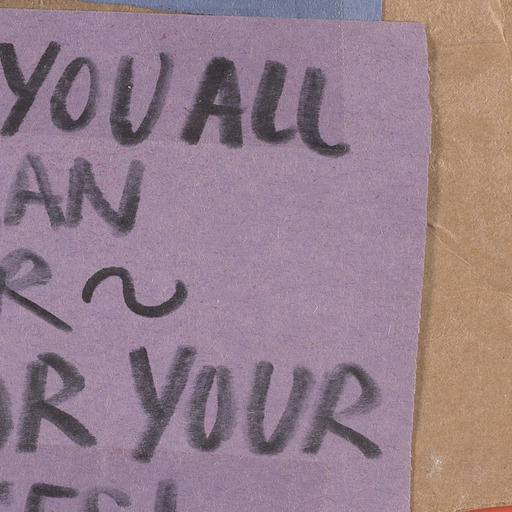 YOU ALL
AN
R ~
OR YOUR